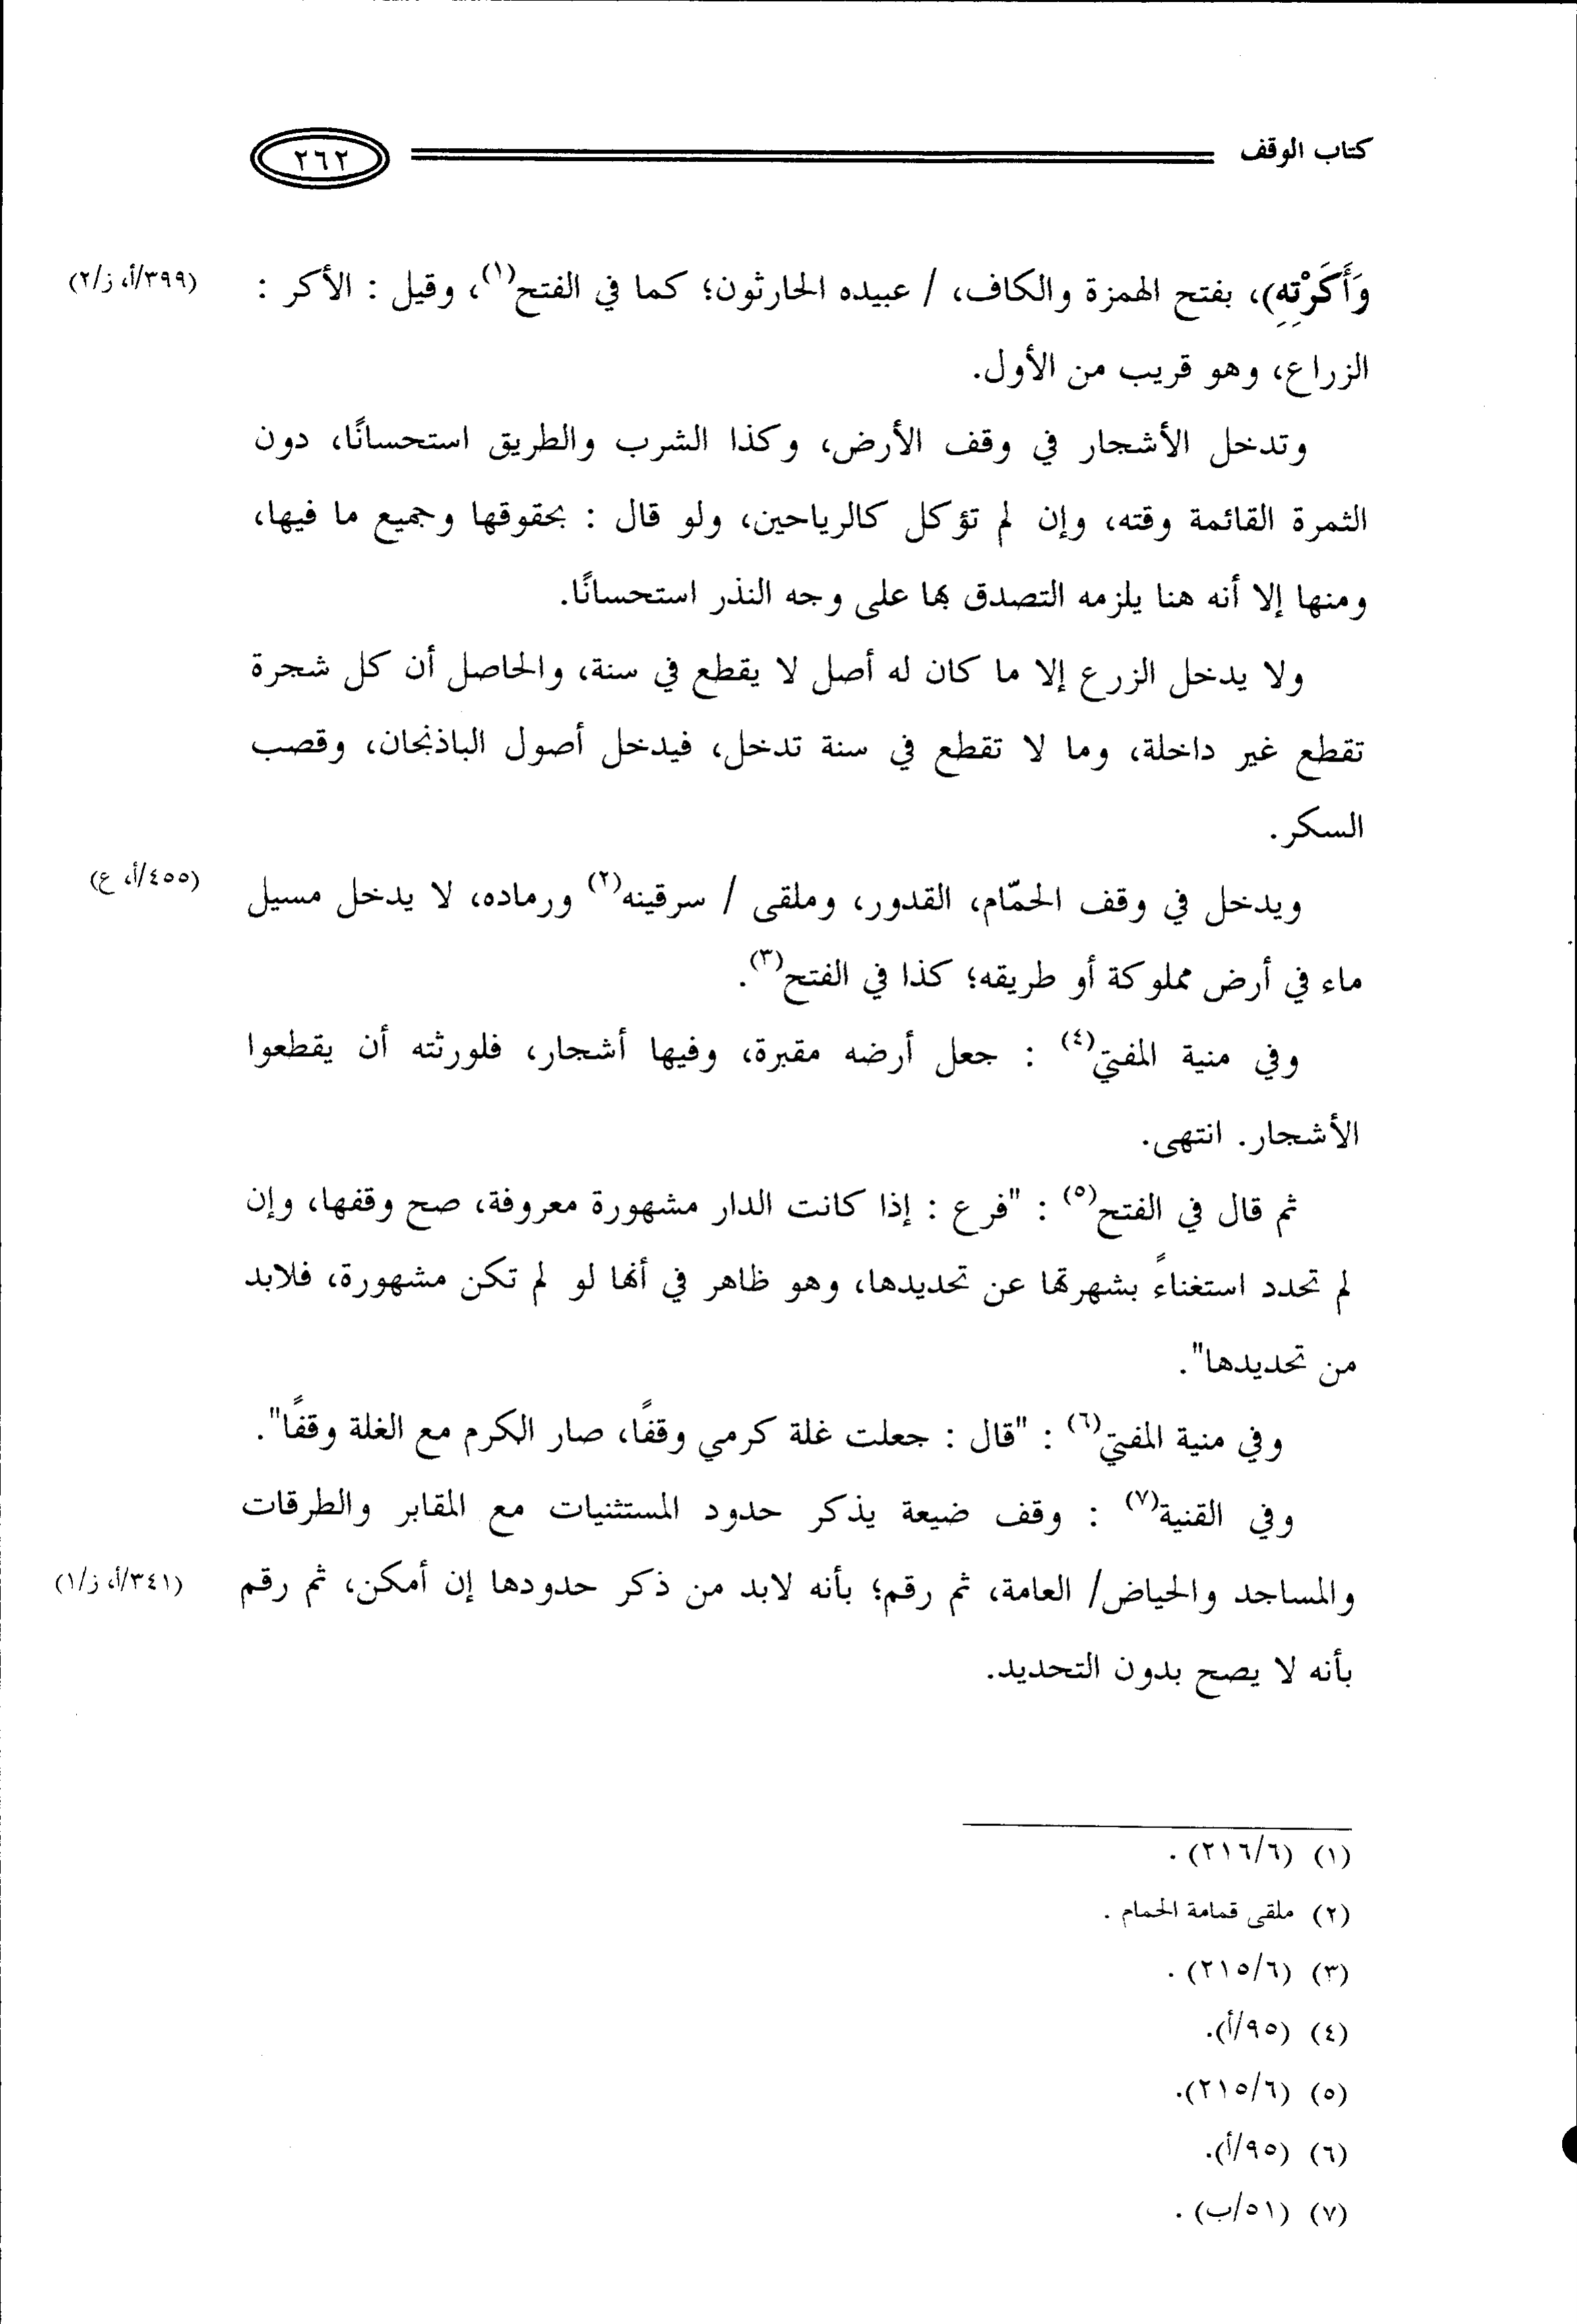 كتاب الوقف ٢٦٢
وَأَكَرَتِهِ)، بفتح الهمزة والكاف، / عبيده الحارثون؛ كما في الفتح(١)، وقيل : الأكر : (٣٩٩/أ، ز/٢)
الزراع، وهو قريب من الأول.
وتدخل الأشجار في وقف الأرض، وكذا الشرب والطريق استحسانًا، دون
الثمرة القائمة وقته، وإن لم تؤكل كالرياحين، ولو قال : بحقوقها وجميع ما فيها،
ومنها إلا أنه هنا يلزمه التصدق بها على وجه النذر استحسانًا.
ولا يدخل الزرع إلا ما كان له أصل لا يقطع في سنة، والحاصل أن كل شجرة
تقطع غير داخلة، وما لا تقطع في سنة تدخل، فيدخل أصول الباذنجان، وقصب
السكر.
ويدخل في وقف الحمّام، القدور، وملقى / سرقينه(٢) ورماده، لا يدخل مسيل (٤٥٥/أ، ع)
ماء في أرض مملوكة أو طريقه؛ كذا في الفتح(٣).
وفي منية المفتي(٤) : جعل أرضه مقبرة، وفيها أشجار، فلورثته أن يقطعوا
الأشجار. انتهى.
ثم قال في الفتح(٥) : "فرع : إذا كانت الدار مشهورة معروفة، صح وقفها، وإن
لم تحدد استغناءً بشهرتها عن تحديدها، وهو ظاهر في أنها لو لم تكن مشهورة، فلابد
من تحديدها".
وفي منية المفتي(٦) : "قال : جعلت غلة كرمي وقفًا، صار الكرم مع الغلة وقفًا".
وفي القنية(٧) : وقف ضيعة يذكر حدود المستثنيات مع المقابر والطرقات
والمساجد والحياض/ العامة، ثم رقم؛ بأنه لابد من ذكر حدودها إن أمكن، ثم رقم (٣٤١/أ، ز/١)
بأنه لا يصح بدون التحديد.
(١) (٢١٦/٦) .
(٢) ملقى قمامة الحمام .
(٣) (٢١٥/٦) .
(٤) (٩٥/أ).
(٥) (٢١٥/٦).
(٦) (٩٥/أ).
(٧) (٥١/ب) .